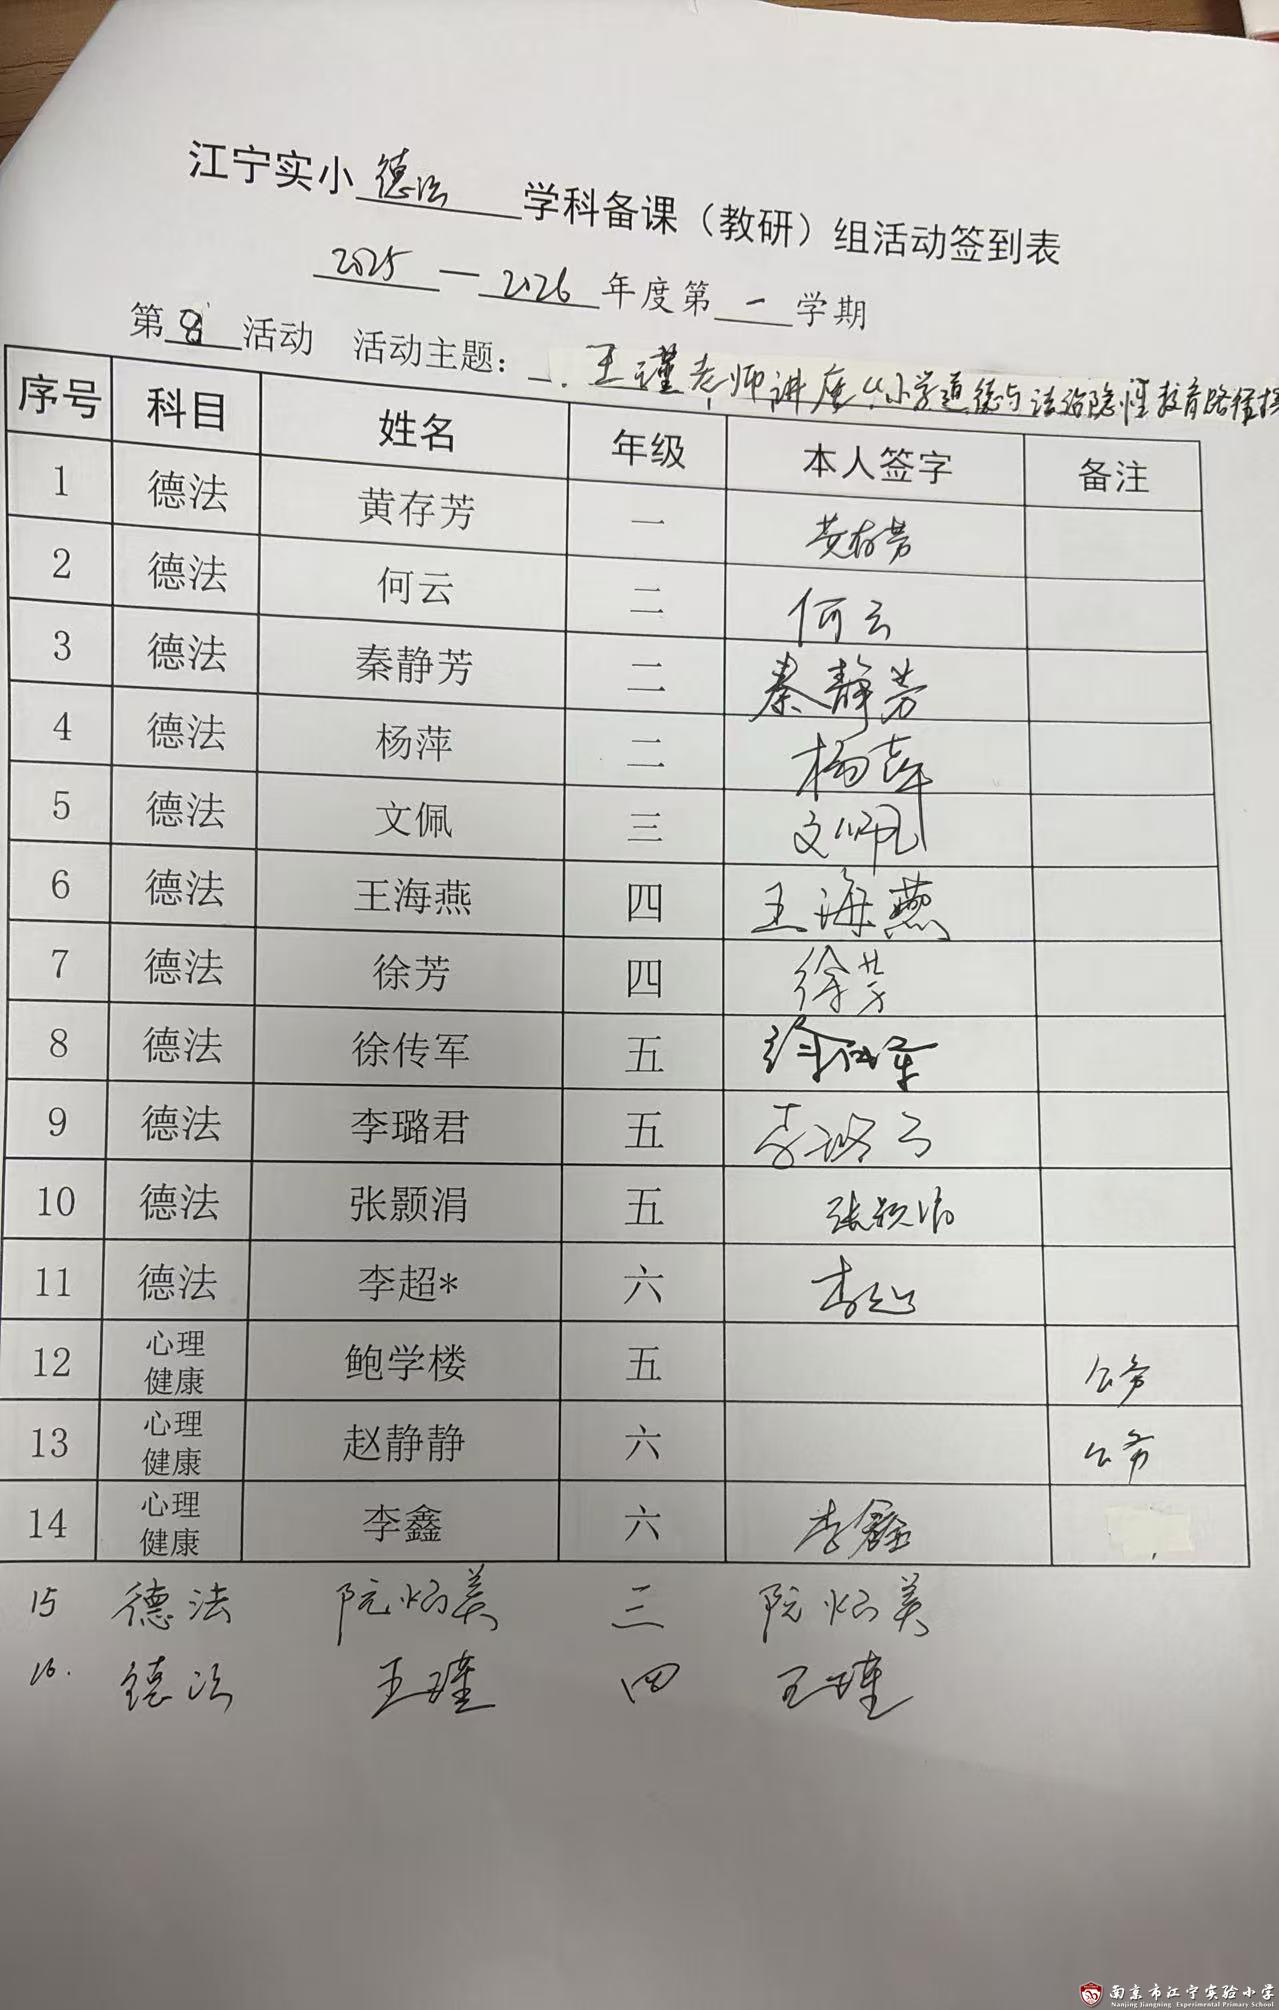 江宁实小 德法 学科备课（教研）组活动签到表
2025 — 2026 年度第 一 学期
第 8 活动 活动主题： 王瑾老师讲座“小学道德与法治隐性教育路径探
序号 科目 姓名 年级 本人签字 备注
1 德法 黄存芳 一 黄存芳
2 德法 何云 二 何云
3 德法 秦静芳 二 秦静芳
4 德法 杨萍 二 杨萍
5 德法 文佩 三 文佩
6 德法 王海燕 四 王海燕
7 德法 徐芳 四 徐芳
8 德法 徐传军 五 徐传军
9 德法 李璐君 五 李璐君
10 德法 张颢涓 五 张颢涓
11 德法 李超* 六 李超
12 心理健康 鲍学楼 五 公务
13 心理健康 赵静静 六 公务
14 心理健康 李鑫 六 李鑫
15 德法 阮炳美 三 阮炳美
16. 德法 王瑾 四 王瑾
南京市江宁实验小学
Nanjing Jiangning Experimental Primary School